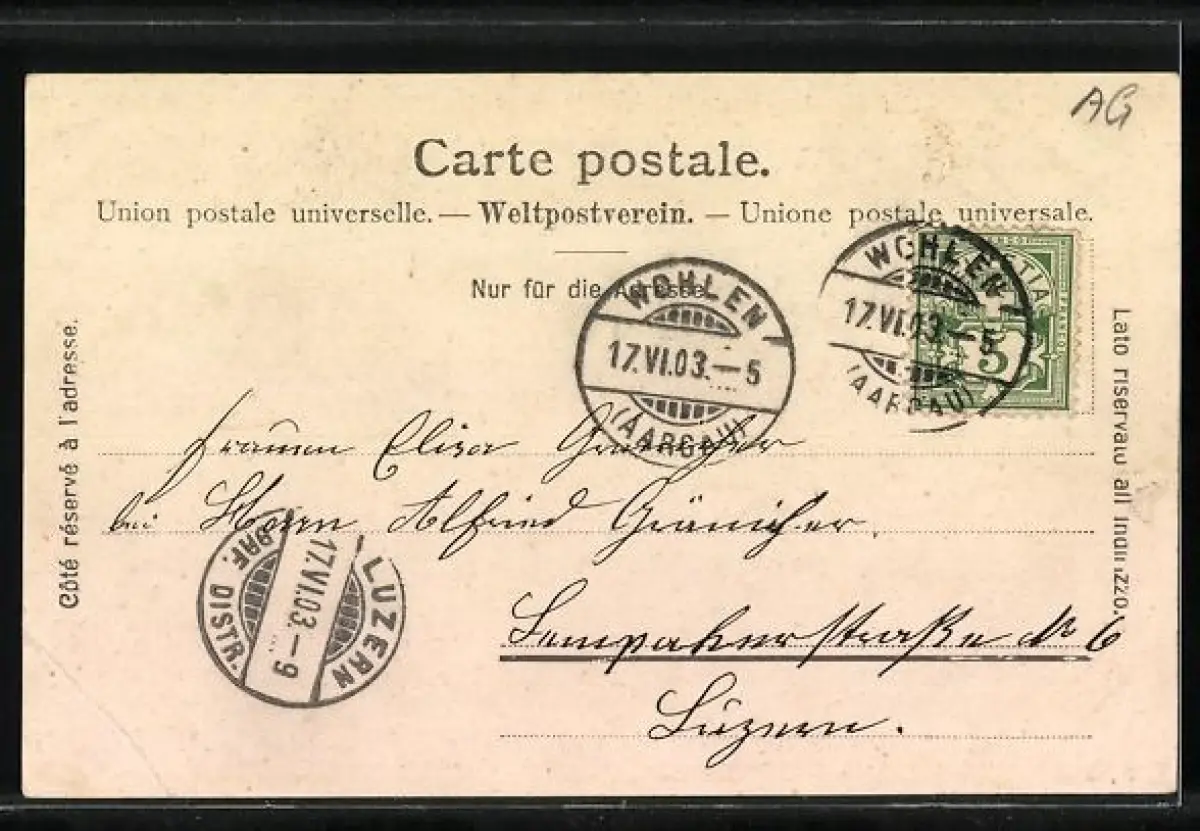 AG
Carte postale.
Union postale universelle. — Weltpostverein. — Unione postale universale.
Nur für die Adresse.
Côté réservé à l'adresse.
Lato riservato all'indirizzo.
WOHLEN
17.VI.03.–5
(AARGAU)
WOHLEN
17.VI.03.–5
(AARGAU)
HELVETIA
5
Frauen Elisa
bei Herrn Alfried Gränicher
LUZERN
17.VI.03.–9
BRF. DISTR.
Sempacherstraße No 6
Luzern.